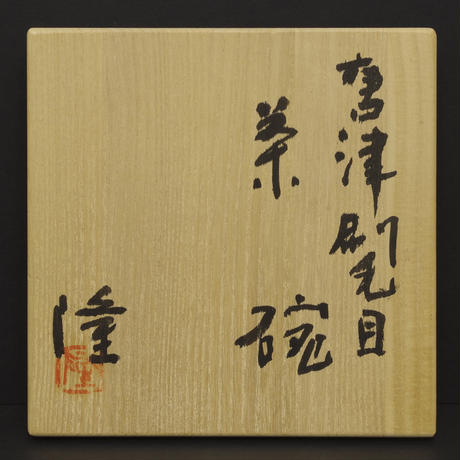 唐津刷毛目
茶碗
隆